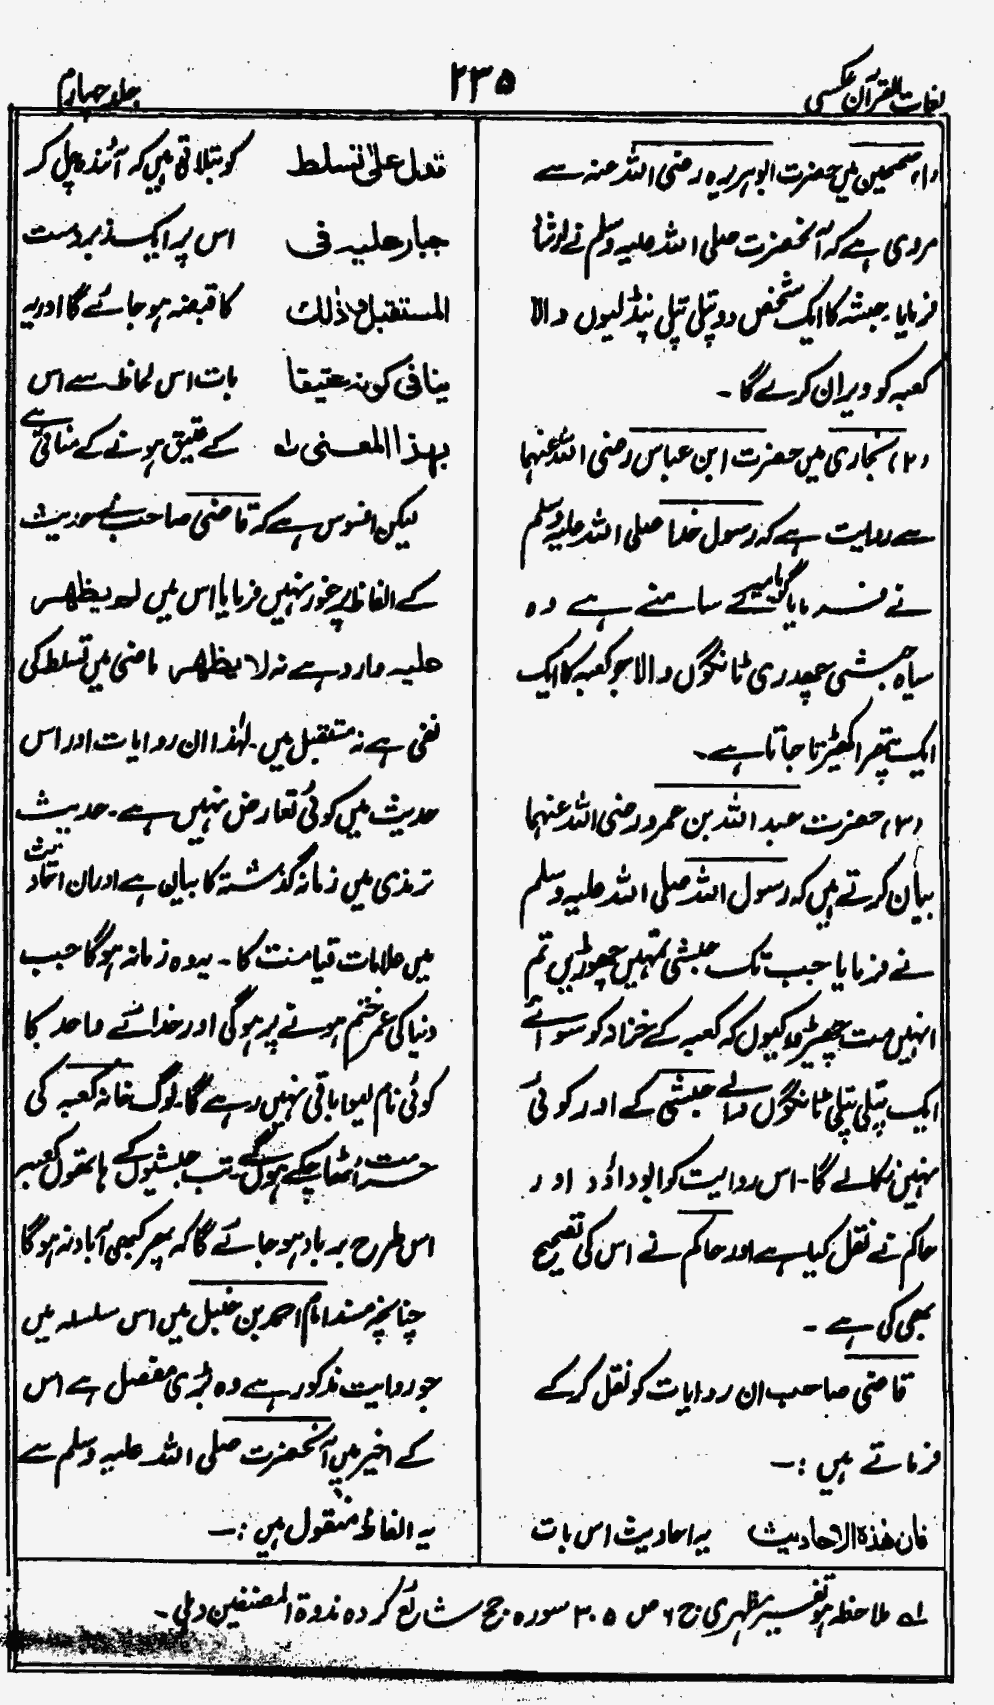 لغات القرآن عکسی
۲۳۵
جلد چہارم
(۱) صحیحین میں حضرت ابوہریرہ رضی اللہ عنہ سے
مروی ہے کہ آنحضرت صلی اللہ علیہ وسلم نے ارشاد
فرمایا۔ حبشہ کا ایک شخص دو پتلی پتلی پنڈلیوں والا
کعبہ کو ویران کرے گا۔
(۲) بخاری میں حضرت ابن عباس رضی اللہ عنہما
سے روایت ہے کہ رسول خدا صلی اللہ علیہ وسلم
نے فرمایا گویا میرے سامنے ہے وہ
سیاہ حبشی چھدری ٹانگوں والا جو کعبہ کا ایک
ایک پتھر اکھیڑتا جاتا ہے۔
(۳) حضرت عبد اللہ بن عمرو رضی اللہ عنہما
بیان کرتے ہیں کہ رسول اللہ صلی اللہ علیہ وسلم
نے فرمایا جب تک حبشی تمہیں چھوڑیں تم
انہیں مت چھیڑو کیوں کہ کعبہ کے خزانہ کو سوائے
ایک پتلی پتلی ٹانگوں والے حبشی کے اور کوئی
نہیں نکالے گا۔ اس روایت کو ابوداؤد اور
حاکم نے نقل کیا ہے اور حاکم نے اس کی تصحیح
بھی کی ہے۔
قاضی صاحب ان روایات کو نقل کر کے
فرماتے ہیں :۔
فان ھذہ الاحادیث یہ احادیث اس بات
تدل علیٰ تسلط کو بتلاتی ہیں کہ آئندہ چل کر
جبار علیہ فی اس پر ایک زبردست
المستقبل وذٰلک کا قبضہ ہو جائے گا اور یہ
ینافی کونہ عتیقا بات اس لحاظ سے اس
بہذا المعنی لہ کے عتیق ہونے کے منافی ہے
لیکن افسوس ہے کہ قاضی صاحب نے حدیث
کے الفاظ پر غور نہیں فرمایا اس میں لم یظھر
علیہ وارد ہے نہ لا یظھر ماضی میں تسلط کی
نفی ہے نہ مستقبل میں۔ لہٰذا ان روایات اور اس
حدیث میں کوئی تعارض نہیں ہے۔ حدیث
ترمذی میں زمانہ گذشتہ کا بیان ہے اور ان احادیث
میں علامات قیامت کا۔ یہ وہ زمانہ ہوگا جب
دنیا کی عمر ختم ہونے پر ہوگی اور خدائے واحد کا
کوئی نام لیوا باقی نہیں رہے گا۔ لوگ خانہ کعبہ کی
حرمت اٹھا چکے ہوں گے۔ تب حبشیوں کے ہاتھوں کعبہ
اس طرح برباد ہو جائے گا کہ پھر کبھی آباد نہ ہوگا
چنانچہ مسند امام احمد بن حنبل میں اس سلسلہ میں
جو روایت مذکور ہے وہ بڑی مفصل ہے اس
کے اخیر میں آنحضرت صلی اللہ علیہ وسلم سے
یہ الفاظ منقول ہیں :۔
لہ ملاحظہ ہو تفسیر مظہری ج ۶ ص ۳۰۵ سورہ حج شائع کردہ ندوۃ المصنفین دہلی۔